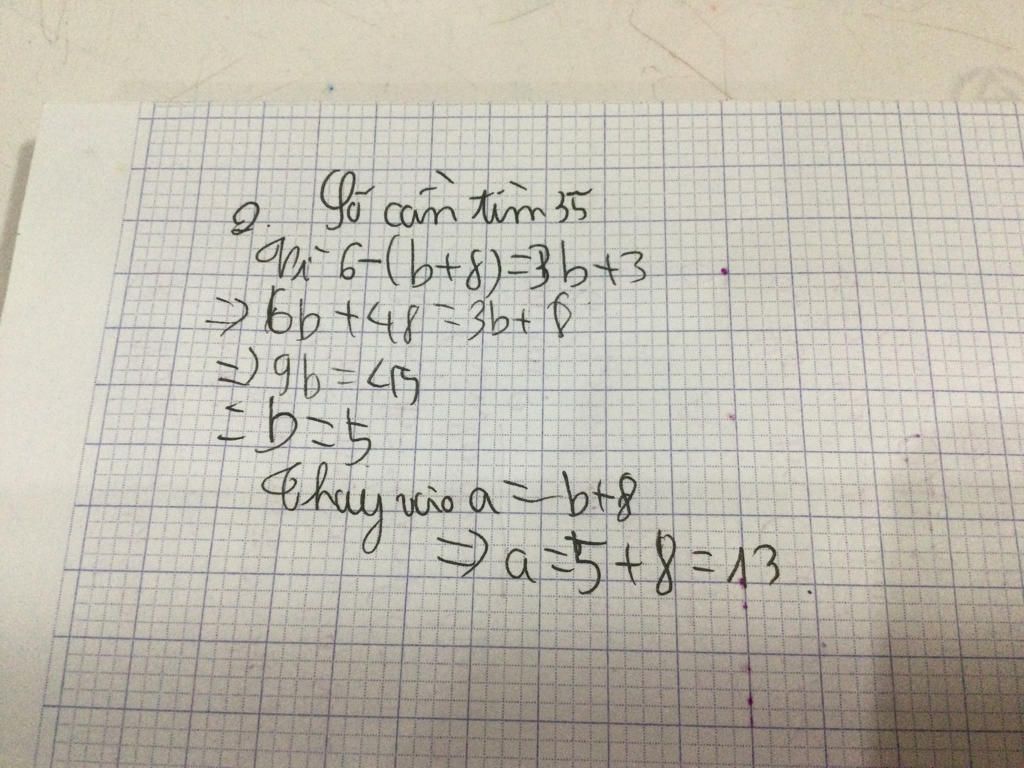 2. Số cần tìm 35
Vì 6-(b+8)=3b+3
=> 6b+48=3b+8
=> 9b=45
= b=5
Thay vào a=-b+8
=> a=5+8=13.